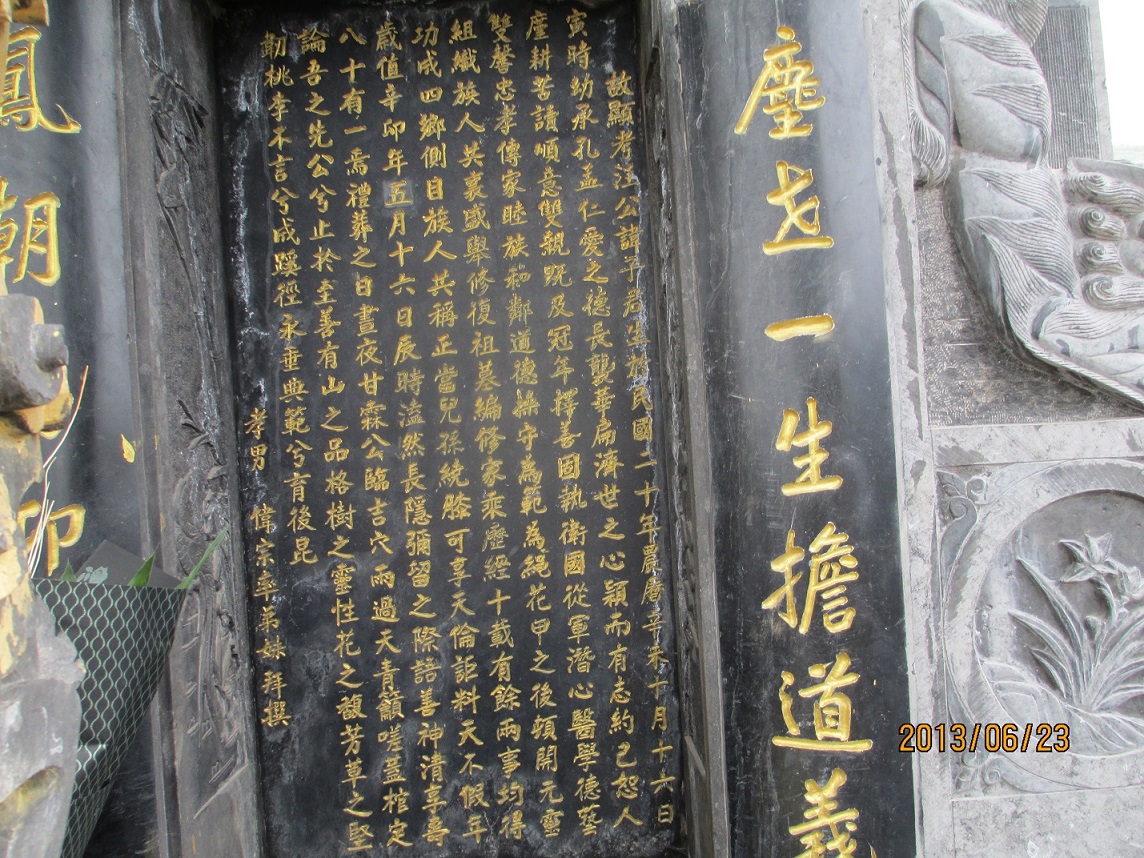 塵世一生擔道義
故顯考汪公諱平君生於民國二十年農曆辛未十月十六日
寅時幼承孔孟仁愛之德長襲華扁濟世之心穎而有志約己恕人
塵耕苦讀順意雙親既及冠年擇善固執衛國從軍潛心醫學德藝
雙馨忠孝傳家睦族和鄰道德操守為範為繩花甲之後頓開元靈
組織族人共襄盛舉修復祖墓編修家乘歷經十載有餘兩事均得
功成四鄉側目族人共稱正當兒孫繞膝可享天倫詎料天不假年
歲值辛卯年五月十六日辰時溘然長隱彌留之際語善神清享壽
八十有一焉禮葬之日晝夜甘霖公臨吉穴雨過天青籲嗟蓋棺定
論吾之先公兮止於至善有山之品格樹之靈性花之馥芳草之堅
韌桃李不言兮成蹊徑永垂典範兮育後昆
孝男 偉宗率弟妹拜撰
鳳朝
2013/06/23